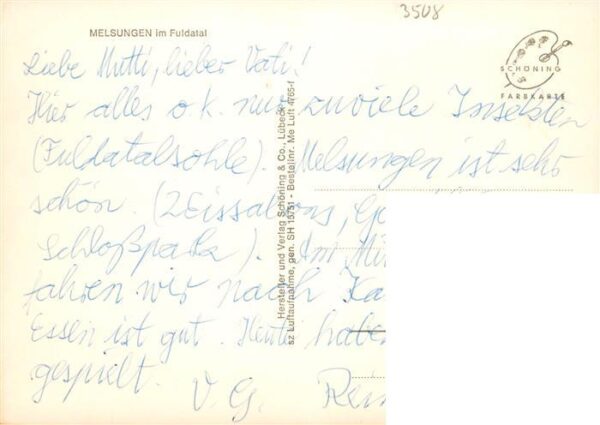 3508
MELSUNGEN im Fuldatal
SCHÖNING
FARBKARTE
Liebe Mutti, lieber Vati!
Hier alles o.k. nur zuviele Insekten
(Fuldatalsohle). Melsungen ist sehr
schön. (2 Eissalons,
Schloßpark). Am
fahren wir nach
Essen ist gut. Heute haben
gespielt.
V. G.
Hersteller und Verlag Schöning & Co., Lübeck
sz Luftaufnahme, gen. SH 10751 - Bestellnr. Me Luft 4765-f